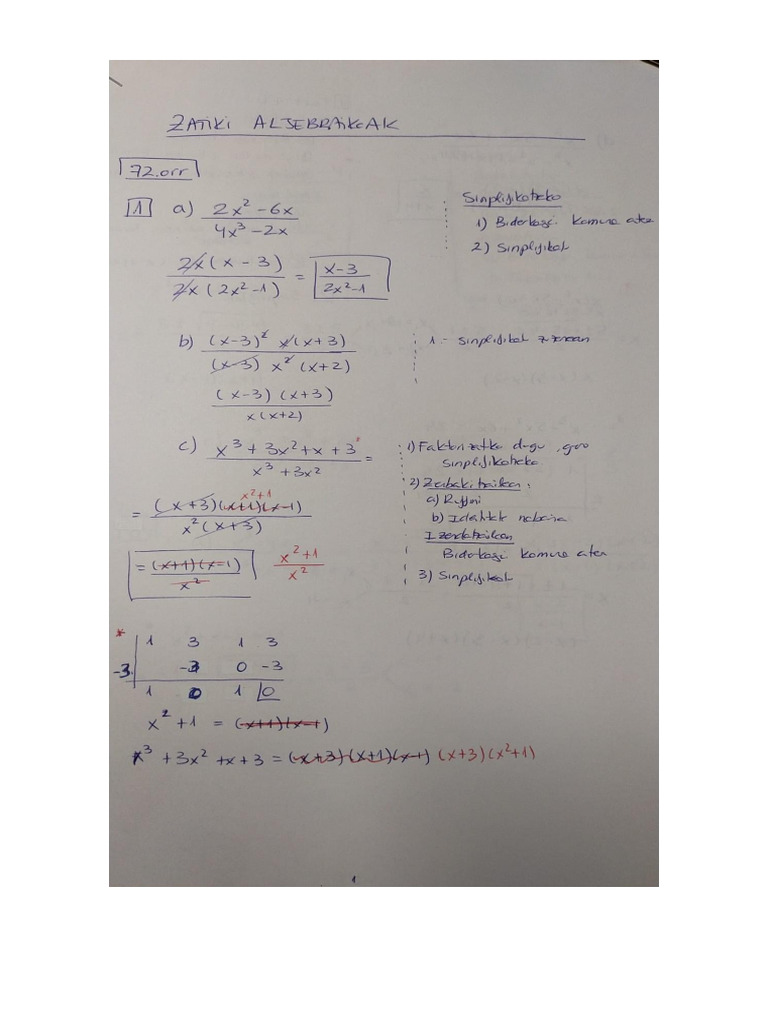 ZATIKI ALJEBRAIKOAK
72.orr
1 a) 2x² - 6x / 4x³ - 2x
2x(x - 3) / 2x(2x² - 1) = x-3 / 2x²-1
Sinplifikatzeko
1) Biderkagai komuna atera
2) Sinplifikatu
b) (x-3)² x(x+3) / (x-3) x² (x+2)
(x-3) (x+3) / x(x+2)
1.- Sinplifikatu zuzenean
c) x³ + 3x² + x + 3* / x³ + 3x² =
= (x+3)(x+1)(x-1) x²+1 / x²(x+3)
= (x+1)(x-1) / x² x²+1 / x²
1) Faktorizatko dugu, gero
sinplifikatzeko
2) Zenbakitzailean:
a) Ruffini
b) Identitate nabaria
Izendatzailean
Biderkagai komuna atera
3) Sinplifikatu
* 1 3 1 3
-3 -3 0 -3
1 0 1 0
x² + 1 = (x+1)(x-1)
x³ + 3x² + x + 3 = (x+3)(x+1)(x-1) (x+3)(x²+1)
1